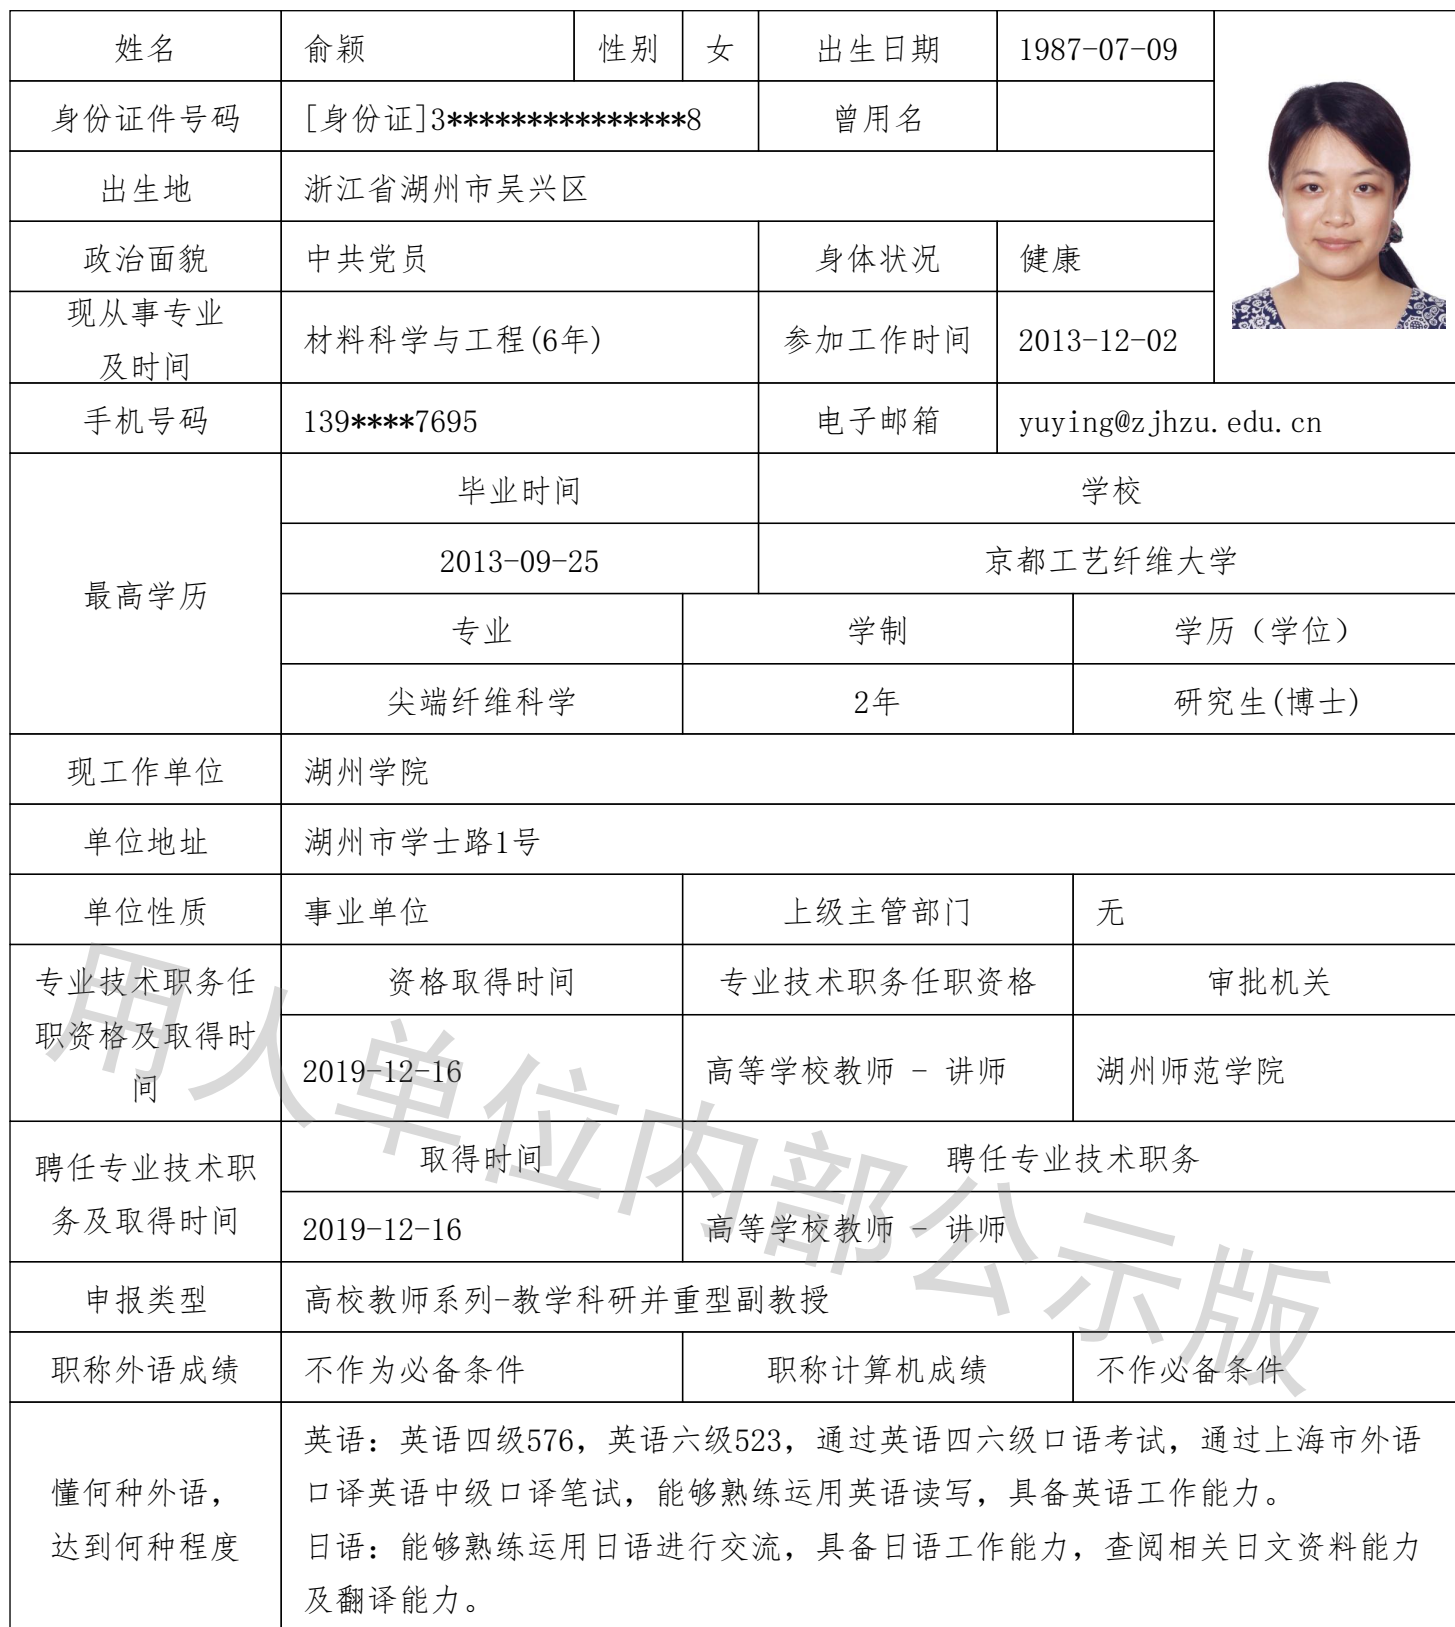 姓名 俞颖 性别 女 出生日期 1987-07-09
身份证件号码 [身份证]3***************8 曾用名
出生地 浙江省湖州市吴兴区
政治面貌 中共党员 身体状况 健康
现从事专业
及时间 材料科学与工程(6年) 参加工作时间 2013-12-02
手机号码 139****7695 电子邮箱 yuying@zjhzu.edu.cn
最高学历
毕业时间 学校
2013-09-25 京都工艺纤维大学
专业 学制 学历（学位）
尖端纤维科学 2年 研究生(博士)
现工作单位 湖州学院
单位地址 湖州市学士路1号
单位性质 事业单位 上级主管部门 无
专业技术职务任
职资格及取得时
间
资格取得时间 专业技术职务任职资格 审批机关
2019-12-16 高等学校教师 - 讲师 湖州师范学院
聘任专业技术职
务及取得时间
取得时间 聘任专业技术职务
2019-12-16 高等学校教师 - 讲师
申报类型 高校教师系列-教学科研并重型副教授
职称外语成绩 不作为必备条件 职称计算机成绩 不作必备条件
懂何种外语，
达到何种程度
英语：英语四级576，英语六级523，通过英语四六级口语考试，通过上海市外语
口译英语中级口译笔试，能够熟练运用英语读写，具备英语工作能力。
日语：能够熟练运用日语进行交流，具备日语工作能力，查阅相关日文资料能力
及翻译能力。
用人单位内部公示版